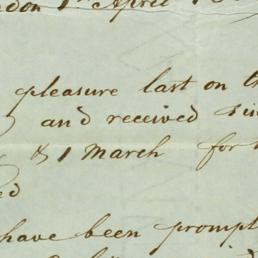 don 1st April
pleasure last on th
and received sin
& 1 March for
ed
have been prompt